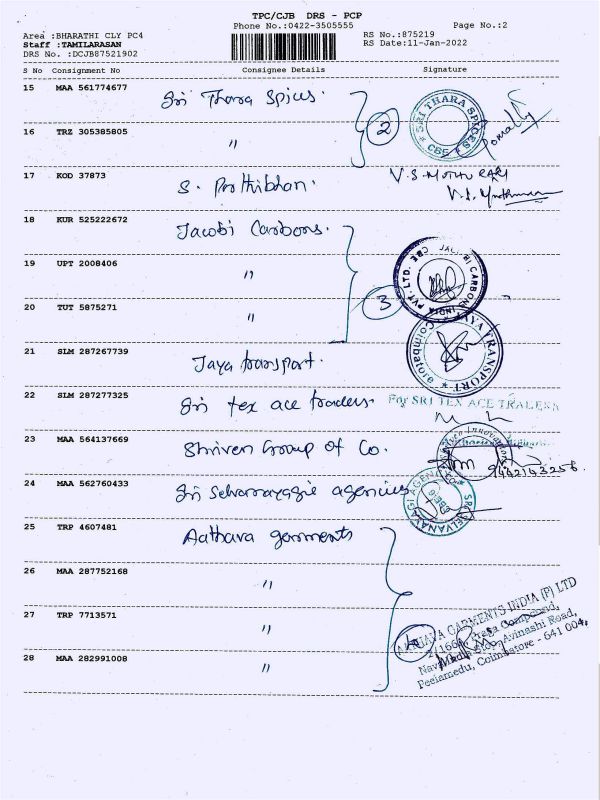 TPC/CJB DRS - PCP
Phone No.:0422-3505555 Page No.:2
Area :BHARATHI CLY PC4 RS No.:875219
Staff :TAMILARASAN RS Date:11-Jan-2022
DRS No. :DCJB87521902
S No Consignment No Consignee Details Signature
15 MAA 561774677 Sri Thara Spices. 2 SRI THARA SPICES * CBE *
16 TRZ 305385805 〃
17 KOD 37873 S. Prithiban. V.S. MUTHU RAJ
18 KUR 525222672 Jacobi Carbons.
19 UPT 2008406 〃 3 JACOBI CARBONS INDIA PVT. LTD. CBE
20 TUT 5875271 〃
21 SLM 287267739 Jaya transport. JAYA TRANSPORT * Coimbatore *
22 SLM 287277325 Sri tex ace traders. For SRI TEX ACE TRADERS
23 MAA 564137669 Shriven Group of Co. 9442193256
24 MAA 562760433 Sri Selvanayagie agencies SRI SELVANAYAGI AGENCIES
25 TRP 4607481 Aathava garments
26 MAA 287752168 〃
27 TRP 7713571 〃 4 GARMENTS INDIA (P) LTD
Avinashi Road,
28 MAA 282991008 〃 Peelamedu, Coimbatore - 641 004.